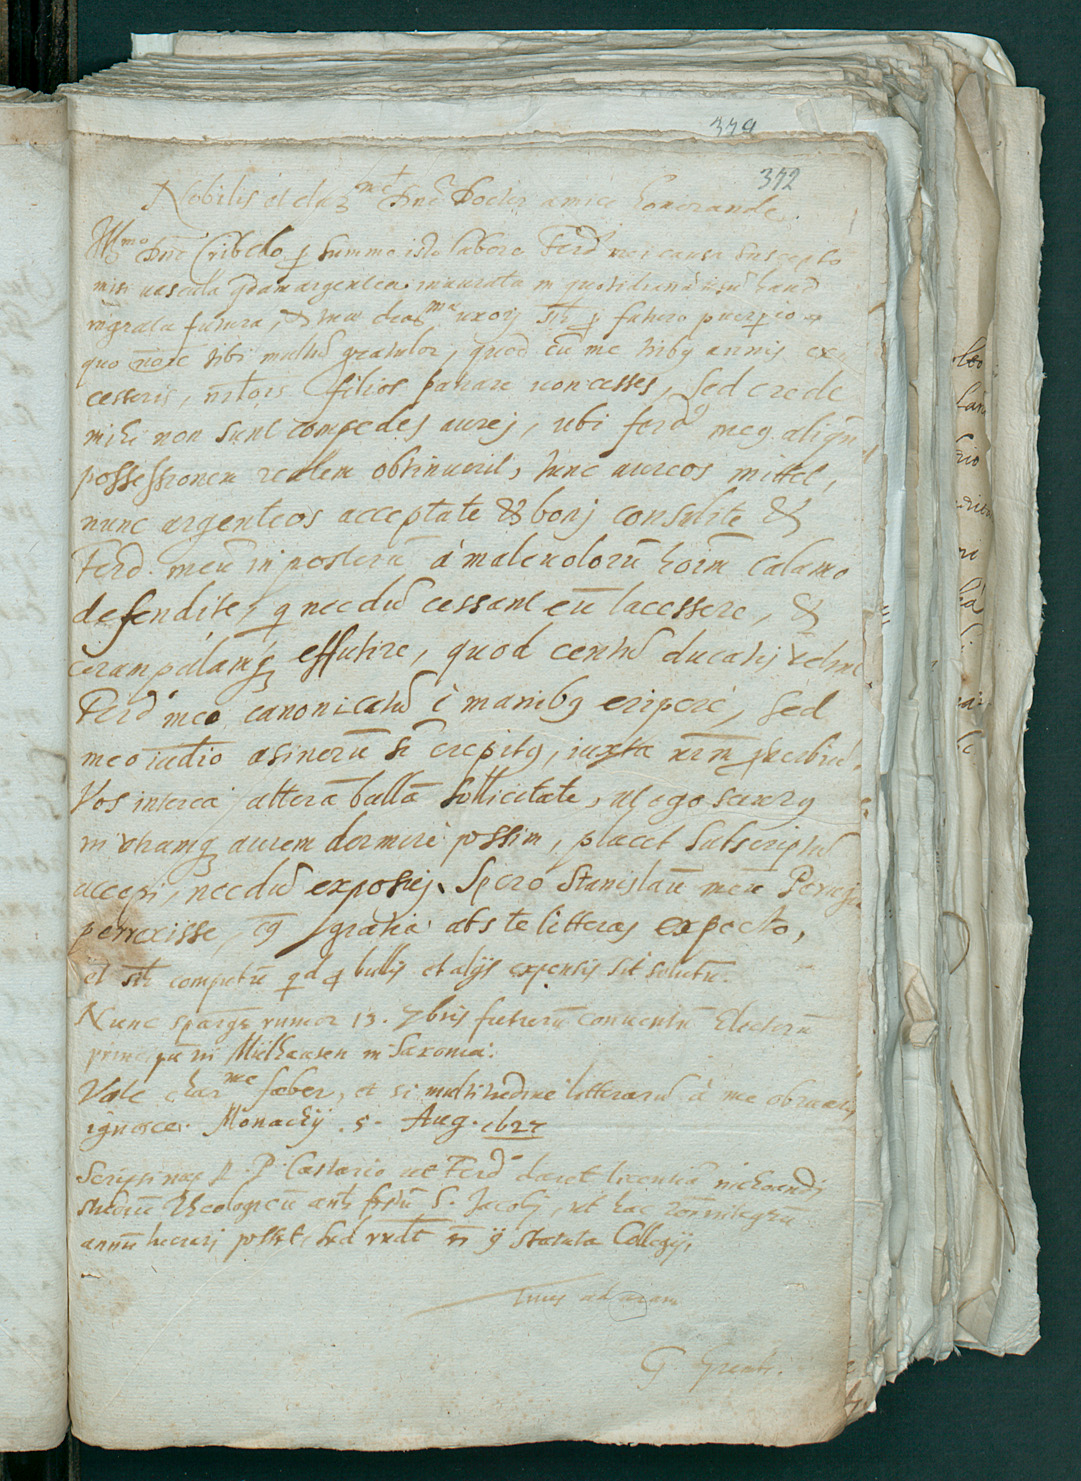 379
372
Nobilis et cla^me Dne Doctor amice honorande.
Ill^mo Dno Cribello p summo isto labore Ferd^i mei causa suscepto
misi vascula qdam argentea inaurata in quotidianũ usũ haud
ingrata futura, & tuae cha^mae uxori p futuro puerpio
quo noie tibi multũ gratulor, quod cũ me tribg annis ex
cesseris, filios parare non cesses, sed crede
mihi non sunt compedes aurej, ubi ferd^g meg aliqũ
possessionem realem obtinuerit, tunc aureos mittet,
nunc argenteos acceptate & bonj consulite &
Ferd. meũ in posterũ à malevolorũ hoim calamo
defendite, q necdũ cessant eũ lacessere, &
coram palamq effutire, quod centũ ducatis velint
Ferd^o meo canonicatũ è manibg eripere, sed
meo iudio asinorũ st crepitg, iuxta vrm pverbiũ.
Vos interea alterã bullã sollicitate, ut ego securg
in utramq aurem dormire possim, placet subscriptũ
accepi, necdũ exposuj. Spero Stanislaũ meũ Perugia
perrexisse, cg gratia abs te litteras expecto,
et computũ qd p bullis et alijs expensis sit solutũ.
Nunc spargr rumor 13. 7bris futurũ conuentũ Electorũ
principũ in Mülhausen in Saxonia.
Vale char^me faber, et si multitudine litterarũ à me obruaris
ignosce. Monachij . 5 . Aug. 1627
Scripsi nop R. P. Castorio ut Ferd^o daret licentiã inchoandi
studiũ Theologicũ ante festũ S. Jacobi, ut hac rõne integrũ
annũ lucrari posset, sed statuta Collegij.
Tuus ad aram
G